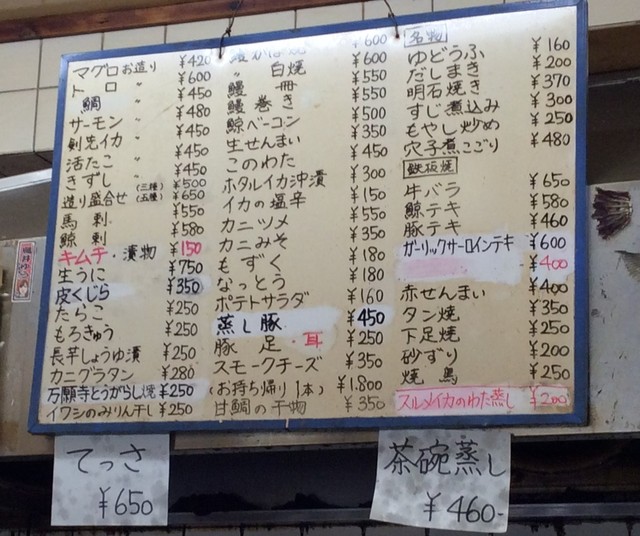 マグロお造り ¥420
トロ 〃 ¥600
鯛 〃 ¥450
サーモン 〃 ¥480
剣先イカ 〃 ¥450
活たこ 〃 ¥450
きずし 〃 ¥450
造り盛合せ (三種) ¥500
(五種) ¥650
馬刺 ¥550
鯨刺 ¥580
キムチ・漬物 ¥150
生うに ¥750
皮くじら ¥350
たらこ ¥250
もろきゅう ¥250
長芋しょうゆ漬 ¥250
カニグラタン ¥280
万願寺とうがらし焼 ¥250
イワシのみりん干し ¥250
鰻かば焼 ¥600
〃 白焼 ¥600
鰻冊 ¥550
鰻巻き ¥550
鯨ベーコン ¥500
生せんまい ¥350
このわた ¥450
ホタルイカ沖漬 ¥300
イカの塩辛 ¥150
カニツメ ¥550
カニみそ ¥550
もずく ¥180
なっとう ¥180
ポテトサラダ ¥160
蒸し豚 ¥450
豚足・耳 ¥250
スモークチーズ ¥350
(お持ち帰り1本) ¥1.800
甘鯛の干物 ¥350
名物
ゆどうふ ¥160
だしまき ¥200
明石焼き ¥370
すじ煮込み ¥300
もやし炒め ¥250
穴子煮こごり ¥480
鉄板焼
牛バラ ¥650
鯨テキ ¥580
豚テキ ¥460
ガーリックサーロインテキ ¥600
¥400
赤せんまい ¥400
タン焼 ¥350
下足焼 ¥250
砂ずり ¥200
焼鳥 ¥250
スルメイカのわた蒸し ¥200
てっさ
¥650
茶碗蒸し
¥460-